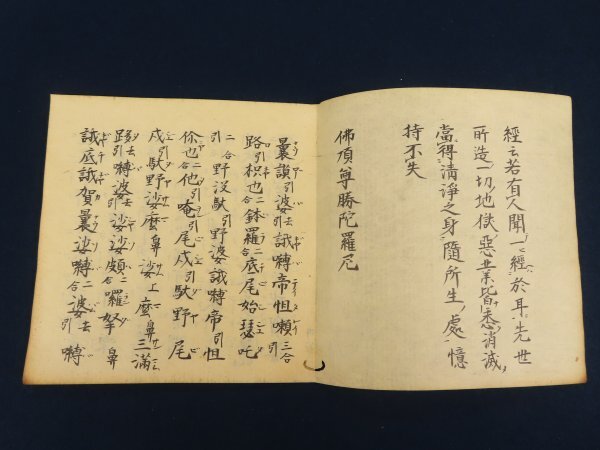 經云若有人聞一經於耳先世
所造一切地獄惡業皆悉消滅
當得清淨之身隨所生處憶
持不失
佛頂尊勝陀羅尼
曩謨引婆去引誐嚩帝怛嚩三合引
路引枳也二合鉢羅二合底尾始瑟吒
二合引野沒馱引野婆誐嚩帝引怛
你也二合他引唵引尾戍引馱野尾
戍引馱野娑麼鼻娑上麼鼻三滿
跢去嚩婆去引娑娑頗二合囉拏鼻
誐底誐賀曩娑嚩二合婆去引嚩